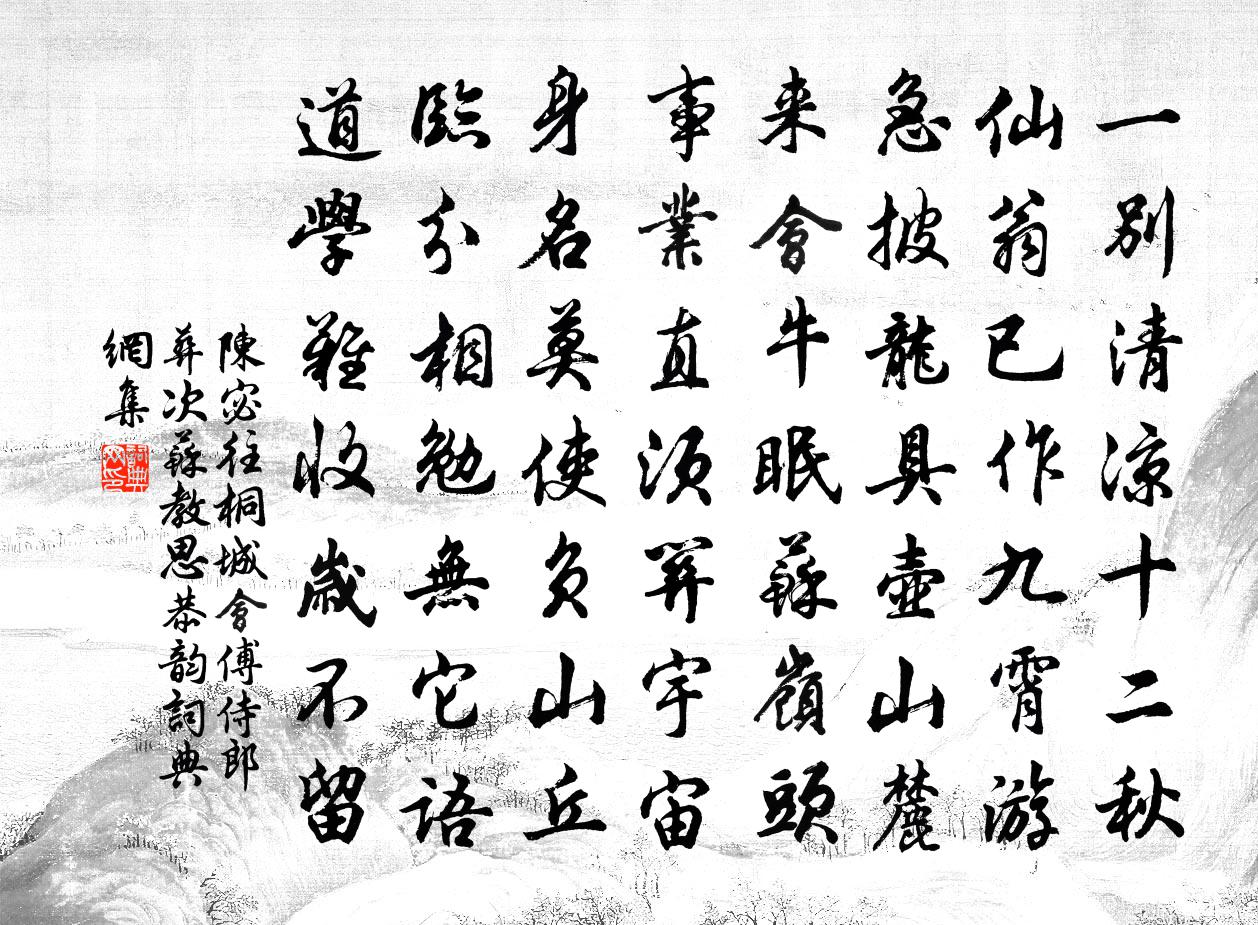 一別清涼十二秋
仙翁已作九霄游
急披龍具壺山麓
来會牛眠蘇嶺頭
事業直須關宇宙
身名莫使負山丘
臨分相勉無它語
道學難收歲不留
陳宓往桐城會傅侍郎
葬次蘇教思恭韵詞典
網集
詞典網印